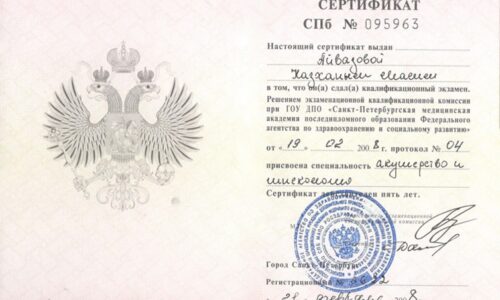 СЕРТИФИКАТ
СПб № 095963
Настоящий сертификат выдан
Айвазовой
в том, что он(а) сдал(а) квалификационный экзамен.
Решением экзаменационной квалификационной комиссии
при ГОУ ДПО «Санкт-Петербургская медицинская
академия последипломного образования Федерального
агентства по здравоохранению и социальному развитию»
от «19» 02 2008 г. протокол № 04
присвоена специальность акушерство и
гинекология
Сертификат действителен пять лет.
Город Санкт-Петербург
Регистрационный №
февраля 8